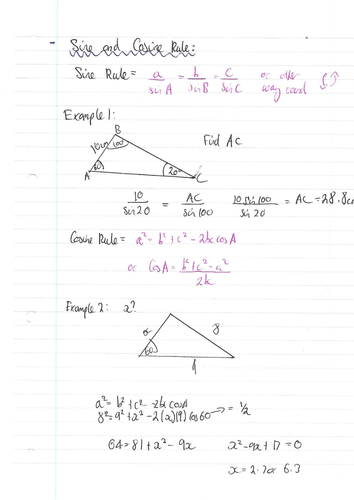 - Sine and Cosine Rule:
Sine Rule = a/sinA = b/sinB = c/sinC or other way round
Example 1:
B
Find AC
10cm 100°
60° 20°
A C
10/sin20 = AC/sin100 10sin100/sin20 = AC = 28.8cm
Cosine Rule = a² = b² + c² - 2bc cosA
or CosA = b² + c² - a²/2bc
Example 2: x?
x 8
60
9
a² = b² + c² - 2bc cosA
8² = 9² + x² - 2(x)(9) cos60 → = 1/2
64 = 81 + x² - 9x x² - 9x + 17 = 0
x = 2.7 or 6.3